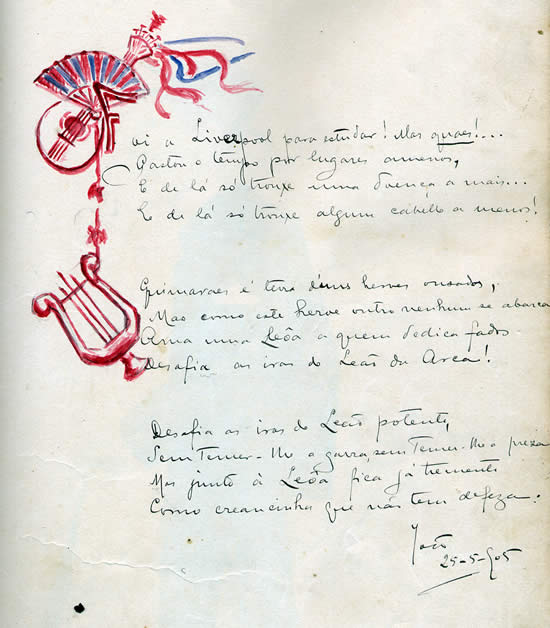 oi a Liverpool para estudar! Mas quaes!...
Passou o tempo por lugares amenos,
E de lá só trouxe uma doença a mais...
E de lá só trouxe algum cabello a menos!
Guimarães é terra d'uns heroes ousados,
Mas como este heroe outro nenhum se abarca
Ama uma Leôa a quem dedica fados
Desafia as iras do Leão da Arca!
Desafia as iras do Leão potente,
Sem temer-lhe a garra, sem temer-lhe a preza
Mas junto à Leôa fica já tremente
Como creancinha que não tem defeza.
João
25-5-905